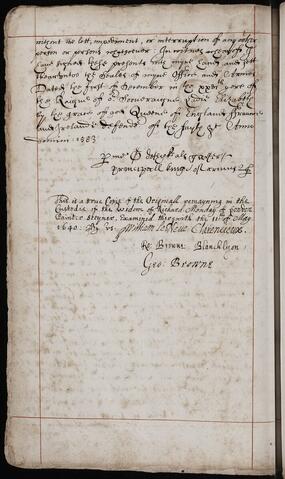 without the lett, impediment, or interruption of any other
person or persons whatsoever. In witnes whereof I
have signed these presents with myne hand, and sett
thereunto the Seales of myne Office and Armes
Dated the first of December in the xxvith yere of
the Raigne of or Soveraigne Ladie Elizabeth
by the grace of god Queene of England, Fraunce
and Ireland defendor of the faith &c Anno
domini 1583
principall kinge of Armes
This is a true Copy of the Originall remayning in the
Custodie of the widdow of Richard Munday of London
Painter Steyner, Examined therewith the 11th of May
1640. By us. William le Neve Clarenceux.
Ro: Browne Blanch Lyon
Geo: Browne